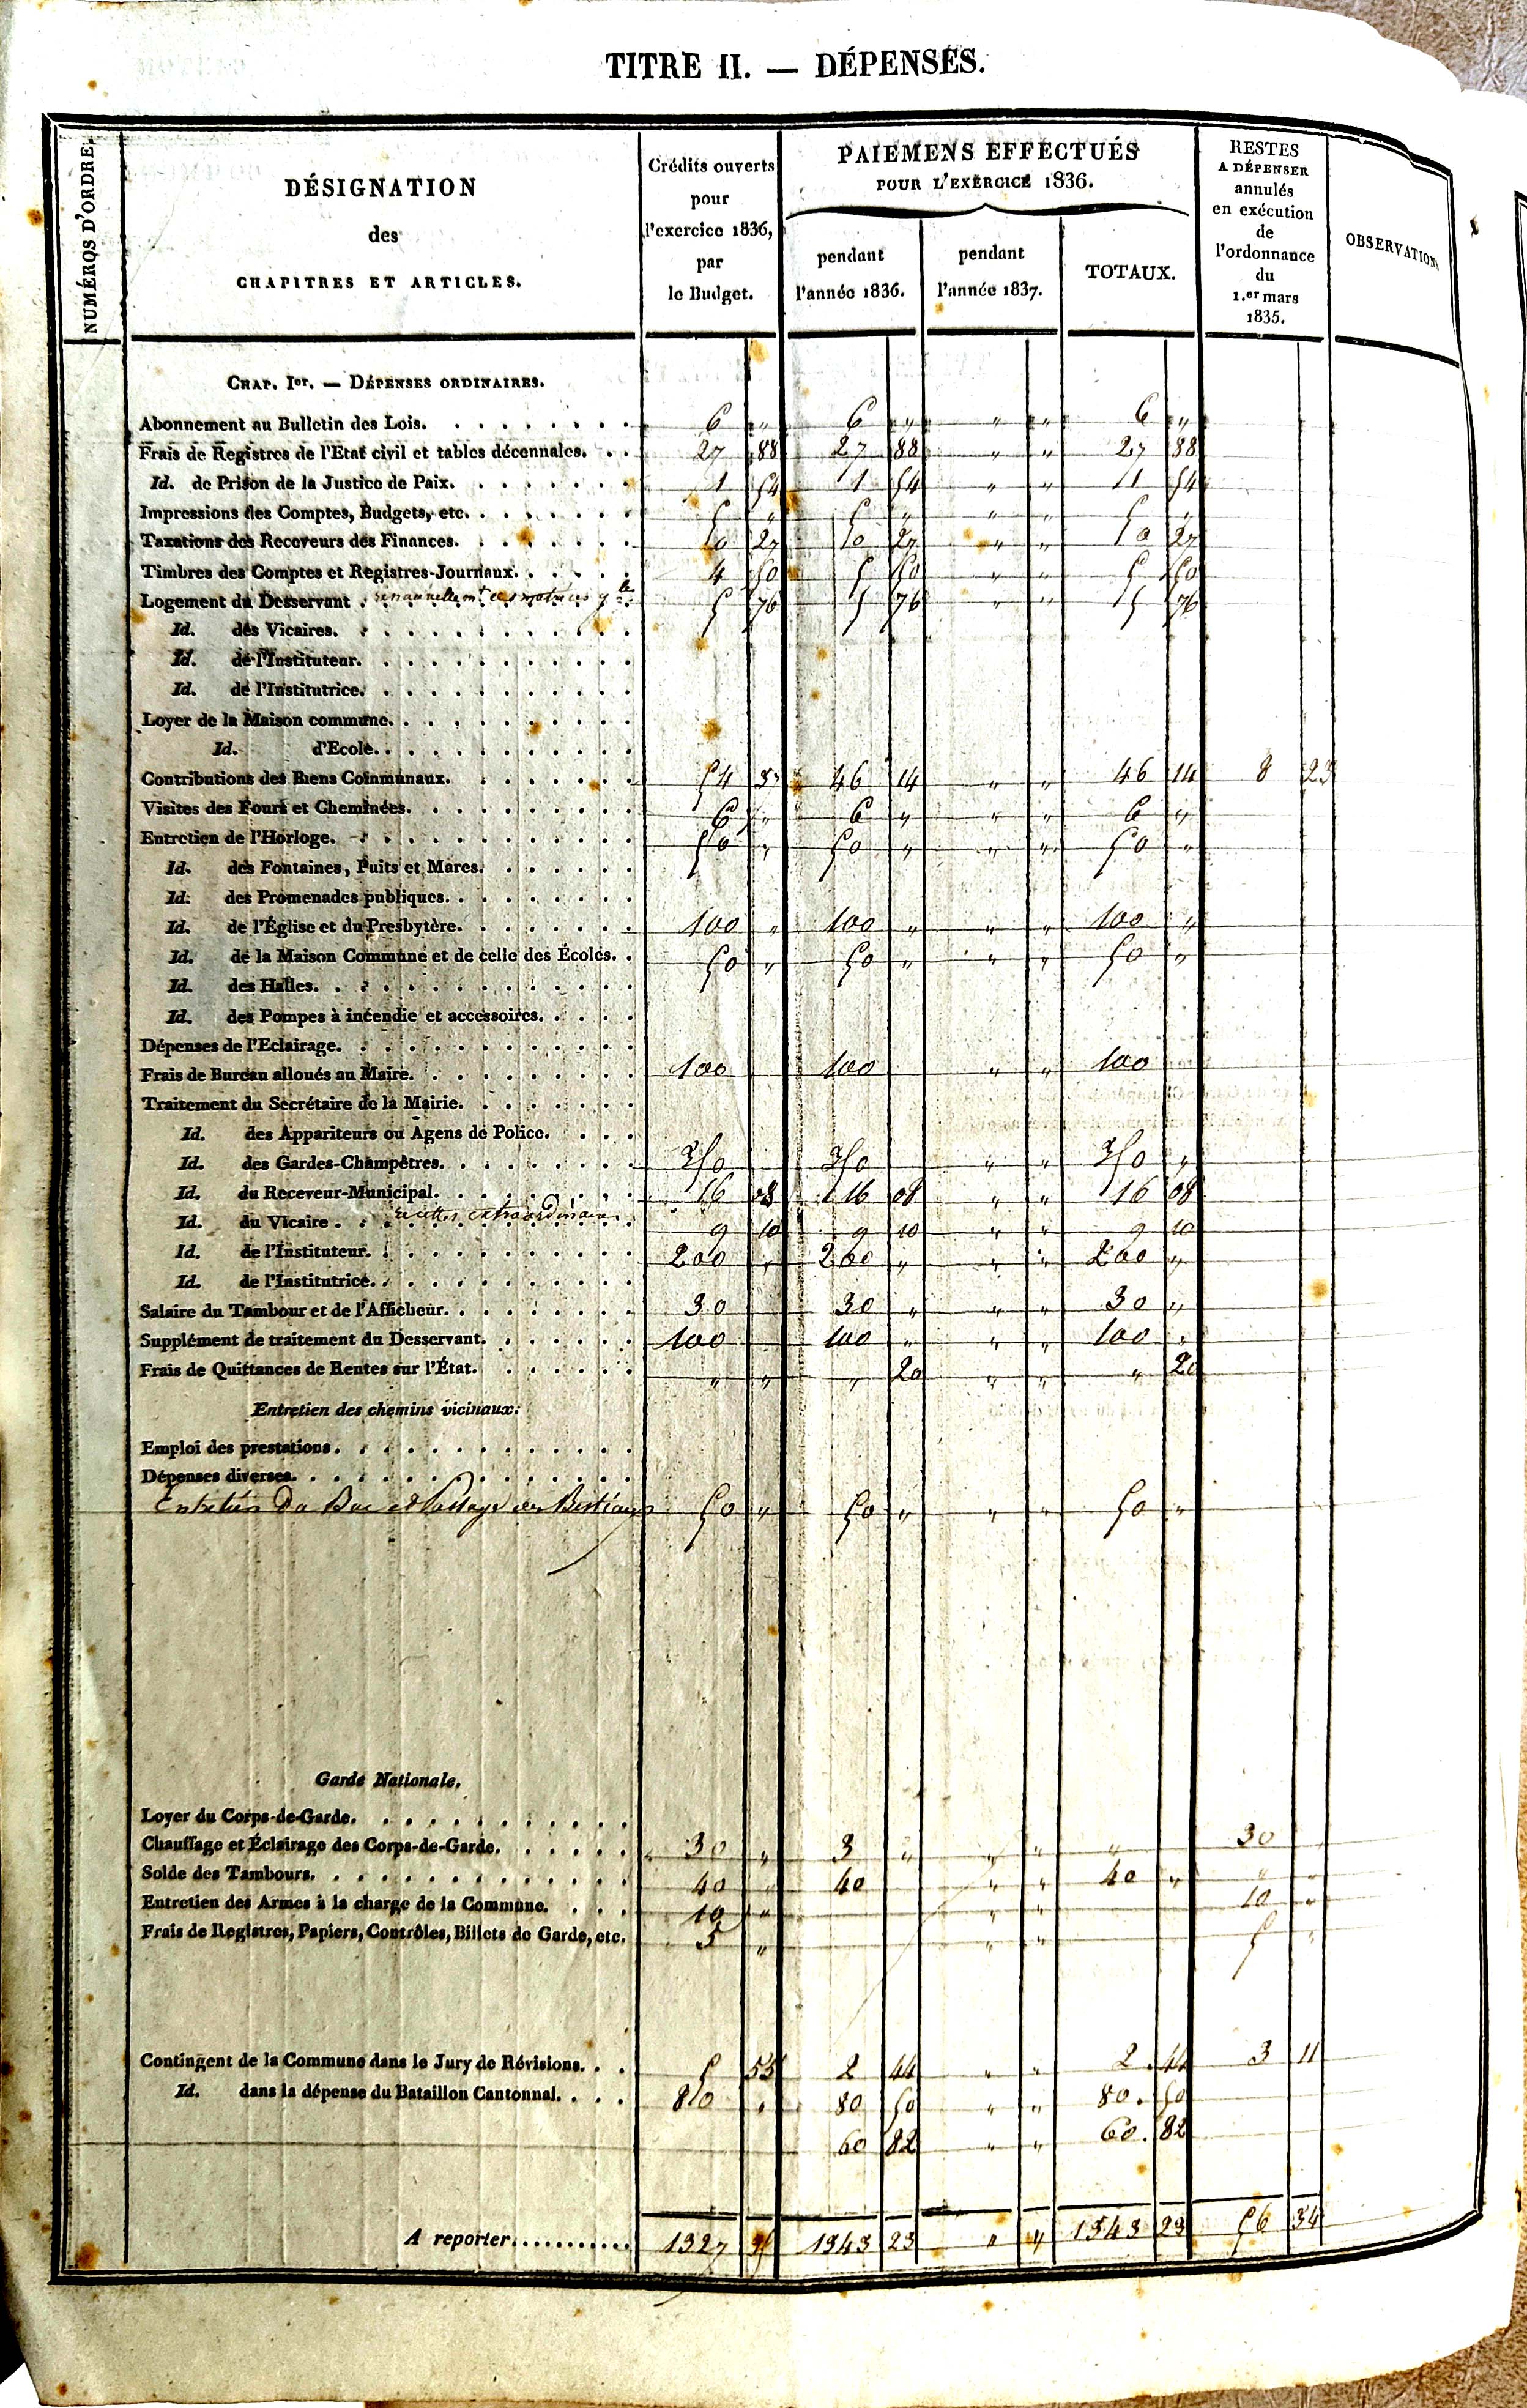 TITRE II. — DÉPENSES.
NUMÉROS D'ORDRE.
DÉSIGNATION
des
CHAPITRES ET ARTICLES.
Crédits ouverts
pour
l'exercice 1836,
par
le Budget.
PAIEMENS EFFECTUÉS
POUR L'EXERCICE 1836.
pendant
l'année 1836.
pendant
l'année 1837.
TOTAUX.
RESTES
A DÉPENSER
annulés
en exécution
de
l'ordonnance
du
1.er mars
1835.
OBSERVATIONS
CHAP. Ier. — DÉPENSES ORDINAIRES.
Abonnement au Bulletin des Lois. 6 " 6 " " " 6 "
Frais de Registres de l'Etat civil et tables décennales. 27 88 27 88 " " 27 88
Id. de Prison de la Justice de Paix. 1 54 1 54 " " 1 54
Impressions des Comptes, Budgets, etc. 5 " 5 " " " 5 "
Taxations des Receveurs des Finances. 10 27 10 27 " " 10 27
Timbres des Comptes et Registres-Journaux. 4 50 5 50 " " 5 50
Logement du Desservant. 5 76 5 76 " " 5 76
Id. des Vicaires.
Id. de l'Instituteur.
Id. de l'Institutrice.
Loyer de la Maison commune.
Id. d'Ecole.
Contributions des Biens Communaux. 54 37 46 14 " " 46 14 8 23
Visites des Fours et Cheminées. 6 " 6 " " " 6 "
Entretien de l'Horloge. 50 " 50 " " " 50 "
Id. des Fontaines, Puits et Mares.
Id. des Promenades publiques.
Id. de l'Église et du Presbytère. 100 " 100 " " " 100 "
Id. de la Maison Commune et de celle des Écoles. 50 " 50 " " " 50 "
Id. des Halles.
Id. des Pompes à incendie et accessoires.
Dépenses de l'Eclairage.
Frais de Bureau alloués au Maire. 100 100 " " 100
Traitement du Secrétaire de la Mairie.
Id. des Appariteurs ou Agens de Police.
Id. des Gardes-Champêtres. 350 350 " " 350 "
Id. du Receveur-Municipal. 116 08 116 08 " " 116 08
Id. du Vicaire. recettes extraordinaires 9 10 9 10 " " 9 10
Id. de l'Instituteur. 200 " 200 " " " 200 "
Id. de l'Institutrice.
Salaire du Tambour et de l'Afficheur. 30 30 " " " 30 "
Supplément de traitement du Desservant. 100 100 " " " 100 "
Frais de Quittances de Rentes sur l'État. " " " 20 " " " 20
Entretien des chemins vicinaux:
Emploi des prestations.
Dépenses diverses.
Entretien Du Bac et Passage des Bestiaux 50 " 50 " " " 50 "
Garde Nationale.
Loyer du Corps-de-Garde.
Chauffage et Éclairage des Corps-de-Garde. 30 " 3 " " " " 30
Solde des Tambours. 40 " 40 " " 40 " " "
Entretien des Armes à la charge de la Commune. 10 " " " 10 "
Frais de Registres, Papiers, Contrôles, Billets de Garde, etc. 5 " " " 5 "
Contingent de la Commune dans le Jury de Révisions. 5 55 2 44 " " 2.44 3 11
Id. dans la dépense du Bataillon Cantonnal. 80 " 80 50 " " 80.50
60 82 " " 60.82
A reporter........... 1327 1343 23 " " 1343 23 56 34